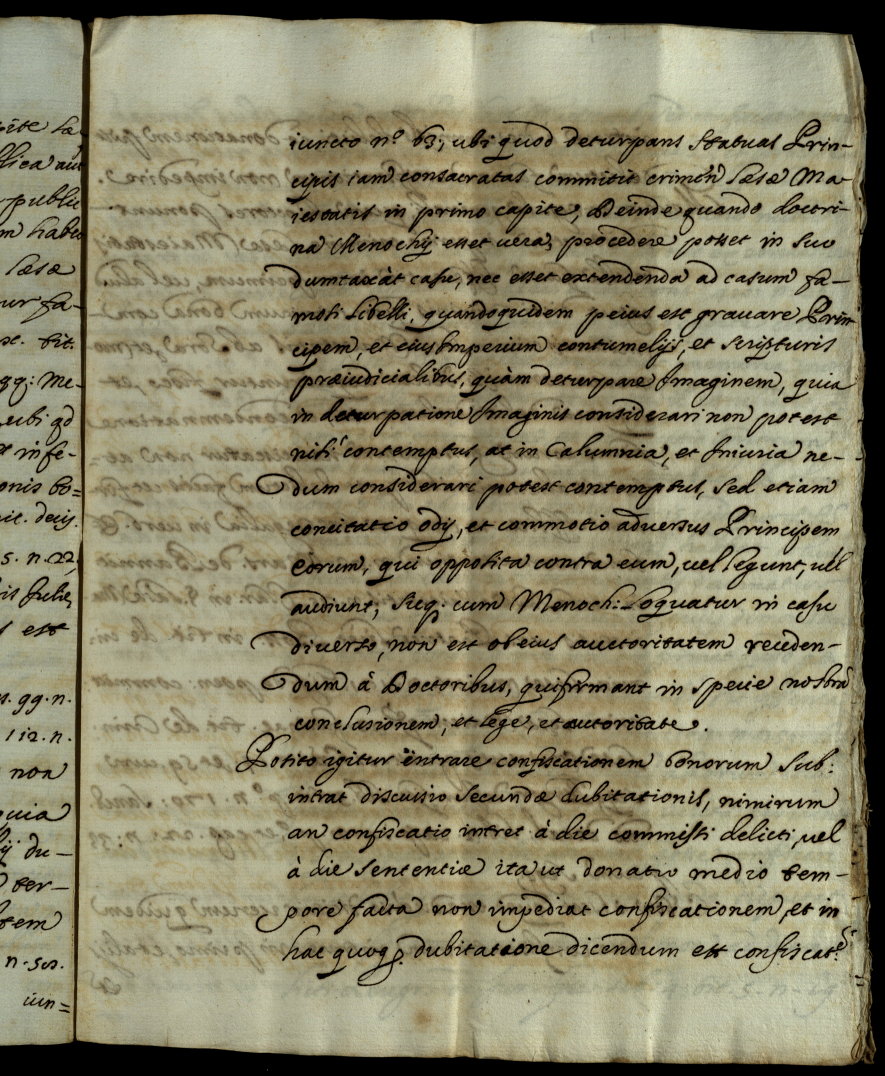 pite læ-
llica aut
publi
m habe
læsæ
ur fa-
bit.
gg: Me-
ubi qd
infe-
onis bo=
sit. decis.
s. n. 22
is Jube,
s est
s. gg. n.
112. n.
non
quia
ij du-
ter-
tem
n. 50.
iun=
iuncto nº. 63, ubi quod deturpans statuas Prin-
cipis iam consacratas committit crimen læsæ Ma-
iestatis in primo capite, Deinde quando doctri-
na Menochij esset uera, procedere posset in suo
dumtaxàt casu, nec esset extendenda ad casum fa-
mosi Libelli, quandoquidem peius est grauare Prin
cipem, et eius Imperium contumelijs, et scripturis
præiudicialibus, quàm deturpare Imaginem, quia
in deturpatione Imaginis considerari non potest
nisi contemptus, at in Calumnia, et Iniuria ne-
dum considerari potest contemptus, sed etiam
concitatio odij, et commotio aduersus Principem
eorum, qui opposita contra eum, uel legunt, uel
audiunt; sicq. cum Menoch: Loquatur in casu
diuerso, non est ob eius auctoritatem receden-
dum à Doctoribus, qui firmant in specie nostrã
conclusionem, et lege, et autoritate.
Posito igitur entrare confiscationem bonorum sub:
intrat discussio secundæ dubitationis, nimirum
an confiscatio intret à die commissi delicti, uel
à die sententiæ ita ut donatio medio tem-
pore facta non impediat confiscationem, et in
hac quoq. dubitatione dicendum est confiscat.ẽ